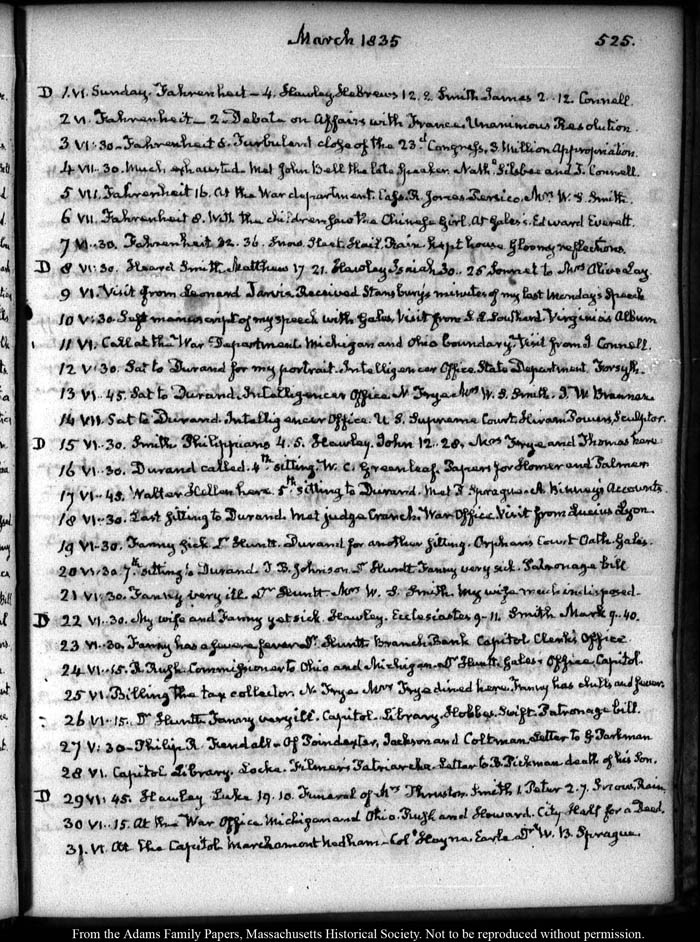 March 1835
525.
D 1. VI. Sunday. Fahrenheit – 4. Hawley Hebrews 12. 2. Smith James 2. 12. Connell.
2 VI. Fahrenheit – 2. Debate on Affairs with France. Unanimous Resolution.
3 VI. 30. Fahrenheit 8. Turbulent close of the 23d Congress. 3 Million Appropriation.
4 VII. 30. Much exhausted. Met John Bell the late Speaker Nathl Silsbee and J. Connell.
5 VII. Fahrenheit 16. At the War department. Cass. R. Jones Persico. Mrs W. S. Smith.
6 VII. Fahrenheit 8. With the children saw the Chinese Girl. At Gales's. Edward Everett.
7 VI. 30. Fahrenheit 32. 36. Snow, Sleet, Hail, Rain. Kept house. Gloomy reflections.
D 8 VI. 30. Heard Smith. Matthew 17. 21. Hawley Isaiah 30. 25. Sonnet to Mrs Olive Lay.
9 VI. Visit from Leonard Jarvis. Received Stansbury's minutes of my last Monday's Speech
10 V. 30. Left manuscript of my speech with Gales. Visit from S. L. Southard. Virginia's Album
11 VI. Call at the War Department. Michigan and Ohio boundary. Visit from J. Connell.
12 V. 30. Sat to Durand for my portrait. Intelligencer Office. State Department. Forsyth.
13 VI. 45. Sat to Durand. Intelligencer Office. N. Frye Mrs W. S. Smith. J. W. Brannan
14 VII. Sat to Durand. Intelligencer Office. U. S. Supreme Court. Hiram Powers, Sculptor.
D 15 VI. 30. Smith Philippians 4. 5. Hawley. John 12. 28. Mrs Frye and Thomas here.
16 VI. 30. Durand called. 4th sitting. W. C. Greenleaf. Papers for Homer and Palmer
17 VI. 45. Walter Hellen here. 5th sitting to Durand. Met P. Sprague. A. Binney's Accounts.
18 VI. 30. Last sitting to Durand. Met judge Cranch. War Office. Visit from Lucius Lyon.
19 VI. 30. Fanny sick. Dr Huntt. Durand for another sitting. Orphans Court Oath. Gales.
20 VI. 30. 7th sitting to Durand. J. B. Johnson. Dr Huntt Fanny very sick. Patronage bill
21 VI. 30. Fanny very ill. Dr Huntt Mrs W. S. Smith. My wife much indisposed.
D 22 VI. 30. My wife and Fanny yet sick. Hawley. Ecclesiastes 9. 11. Smith Mark 9. 40.
23 VI. 30. Fanny has a severe fever. Dr Huntt. Branch Bank. Capitol Clerk's Office
24 VI. 15. R. Rush Commissioner to Ohio and Michigan. Dr Huntt. Gales's Office. Capitol.
25 VI. Billing the tax collector. N. Frye. Mrs Frye dined here. Fanny has chills and fever.
26 VI. 15. Dr Huntt. Fanny very ill. Capitol. Library. Hobbes. Swift. Patronage bill.
27 V. 30. Philip R. Fendall. Of Poindexter, Jackson and Coltman. Letter to G. Parkman
28 VI. Capitol Library. Locke. Filmer's Patriarcha. Letter to B. Pickman death of his Son.
D 29 VI. 45. Hawley Luke 19. 10. Funeral of Mrs Thruston. Smith 1. Peter 2. 7. Snow, Rain.
30 VI. 15. At the War Office. Michigan and Ohio. Rush and Howard. City Hall for a Deed.
31. VI. At the Capitol. Marchamont Nedham. Coll Hayne. Earle. Dr W. B. Sprague.
From the Adams Family Papers, Massachusetts Historical Society. Not to be reproduced without permission.